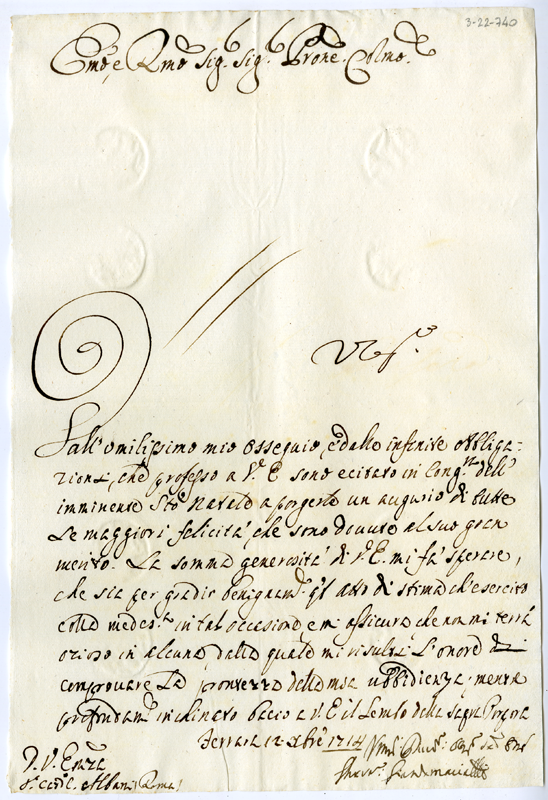 3-22-740
Em̃o, e Rm̃o Sig.r Sig.r Prõne Colmo
Dall'omilissimo mio ossequio, e dalle infinite obbliga-
zioni, che professo a V.E. sono ecitato in Cong.ra dell'
imminente Sto Natale a porgerle un augurio di tutte
le maggiori felicità, che sono dovute al suo gran
merito. La somma generosità di V.E. mi fà sperare,
che sia per gradir benignam.te q.to atto di stima ch'esercito
colla medes.ma in tal occasione e m'assicura che non mi terrà
ozioso in alcuna, dalla quale mi risulti l'onore di
comprovarle la prontezza della mia ubbidienza; mentre
profondam.te inchinato bacio a V.E. il Lembo della Sagra Porpora
Ferrara 12 Xbre 1714
D. V. Emza
S.r Card.l Albani (Roma)